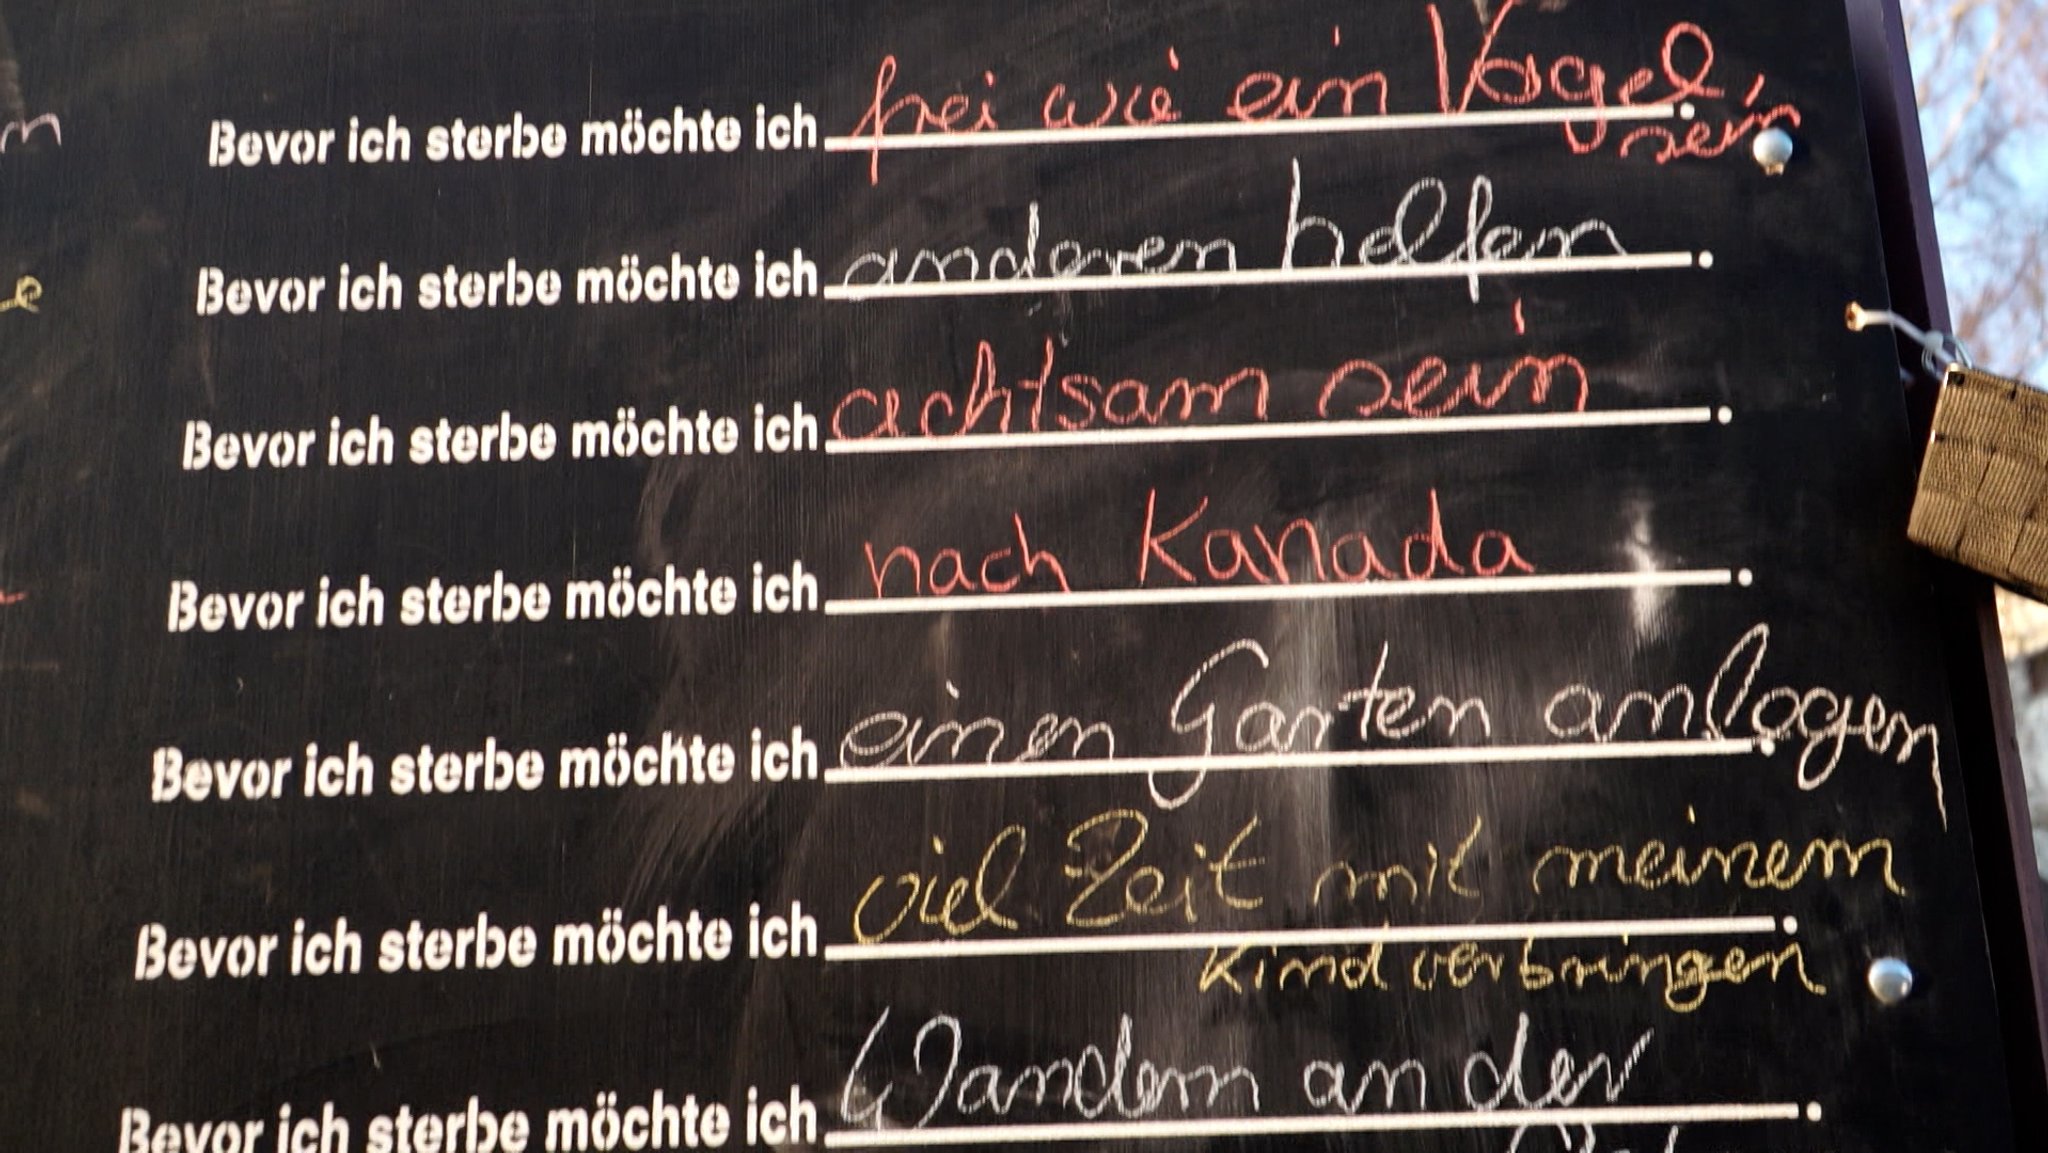 Bevor ich sterbe möchte ich frei wie ein Vogel
sein
Bevor ich sterbe möchte ich anderen helfen.
Bevor ich sterbe möchte ich achtsam sein.
Bevor ich sterbe möchte ich nach Kanada.
Bevor ich sterbe möchte ich einen Garten anlegen
Bevor ich sterbe möchte ich viel Zeit mit meinem
Kind verbringen
Bevor ich sterbe möchte ich Wandern an der